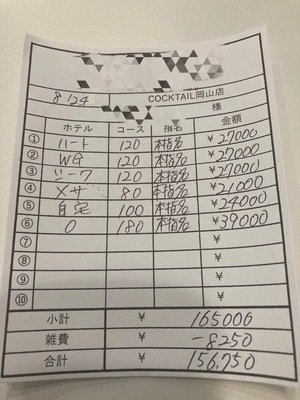 8/24 COCKTAIL岡山店
様
ホテル コース 指名 金額
① ハート 120 本指名 ¥27000
② WG 120 本指名 ¥27000
③ シーク 120 本指名 ¥27000
④ メサ 80 本指名 ¥21000
⑤ 自宅 100 本指名 ¥24000
⑥ O 180 本指名 ¥39000
⑦ ¥
⑧ ¥
⑨ ¥
⑩ ¥
小計 ¥ 165000
雑費 ¥ -8250
合計 ¥ 156,750